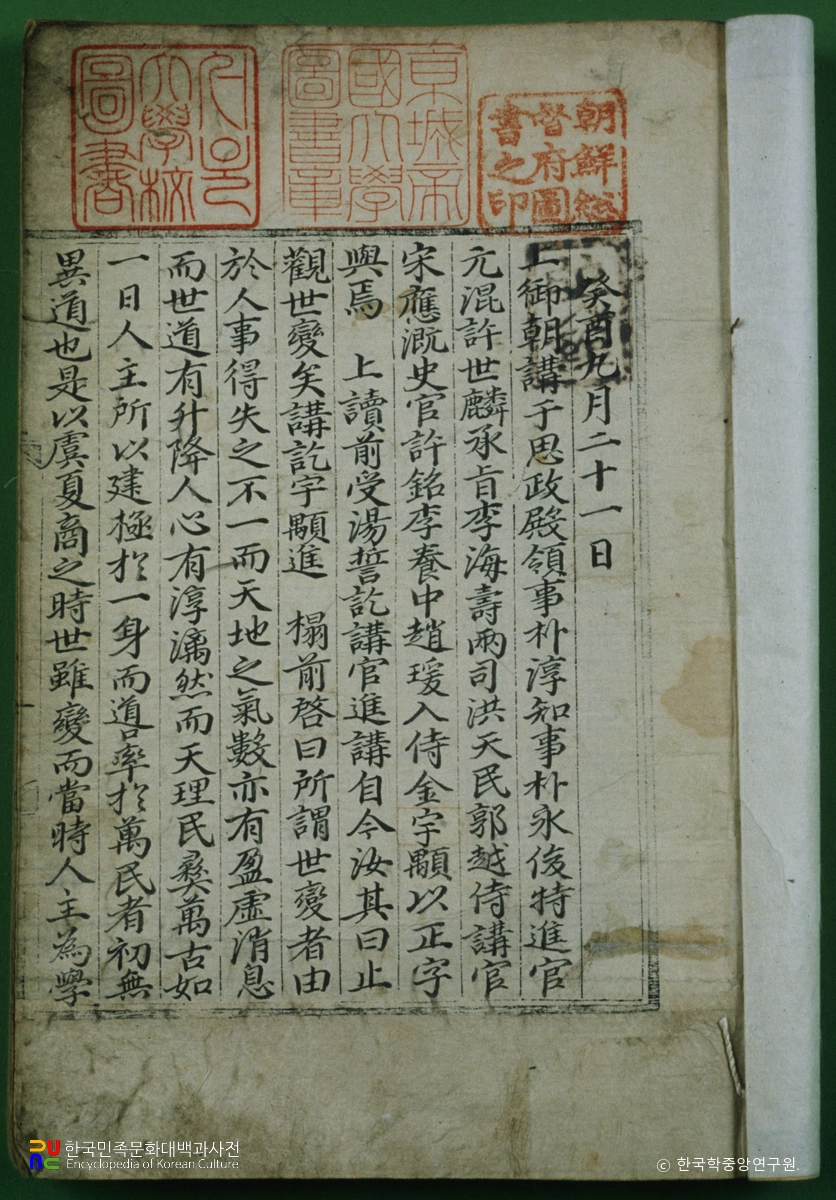 朝鮮総
督府圖
書之印
京城帝
國大學
圖書章
大學校
圖書
癸酉九月二十一日
上御朝講于思政殿領事朴淳知事朴永俊特進官
元混許世麟承旨李海壽兩司洪天民郭越侍講官
宋應漑史官許銘李養中趙瑗入侍金宇顒以正字
與焉 上讀前受湯誓訖講官進講自今汝其曰止
觀世變矣講訖宇顒進 榻前啓曰所謂世變者由
於人事得失之不一而天地之氣數亦有盈虛消息
而世道有升降人心有淳漓然而天理民彝萬古如
一日人主所以建極於一身而導率於萬民者初無
異道也是以虞夏商之時世雖變而當時人主為學
한국민족문화대백과사전
Encyclopedia of Korean Culture
© 한국학중앙연구원.